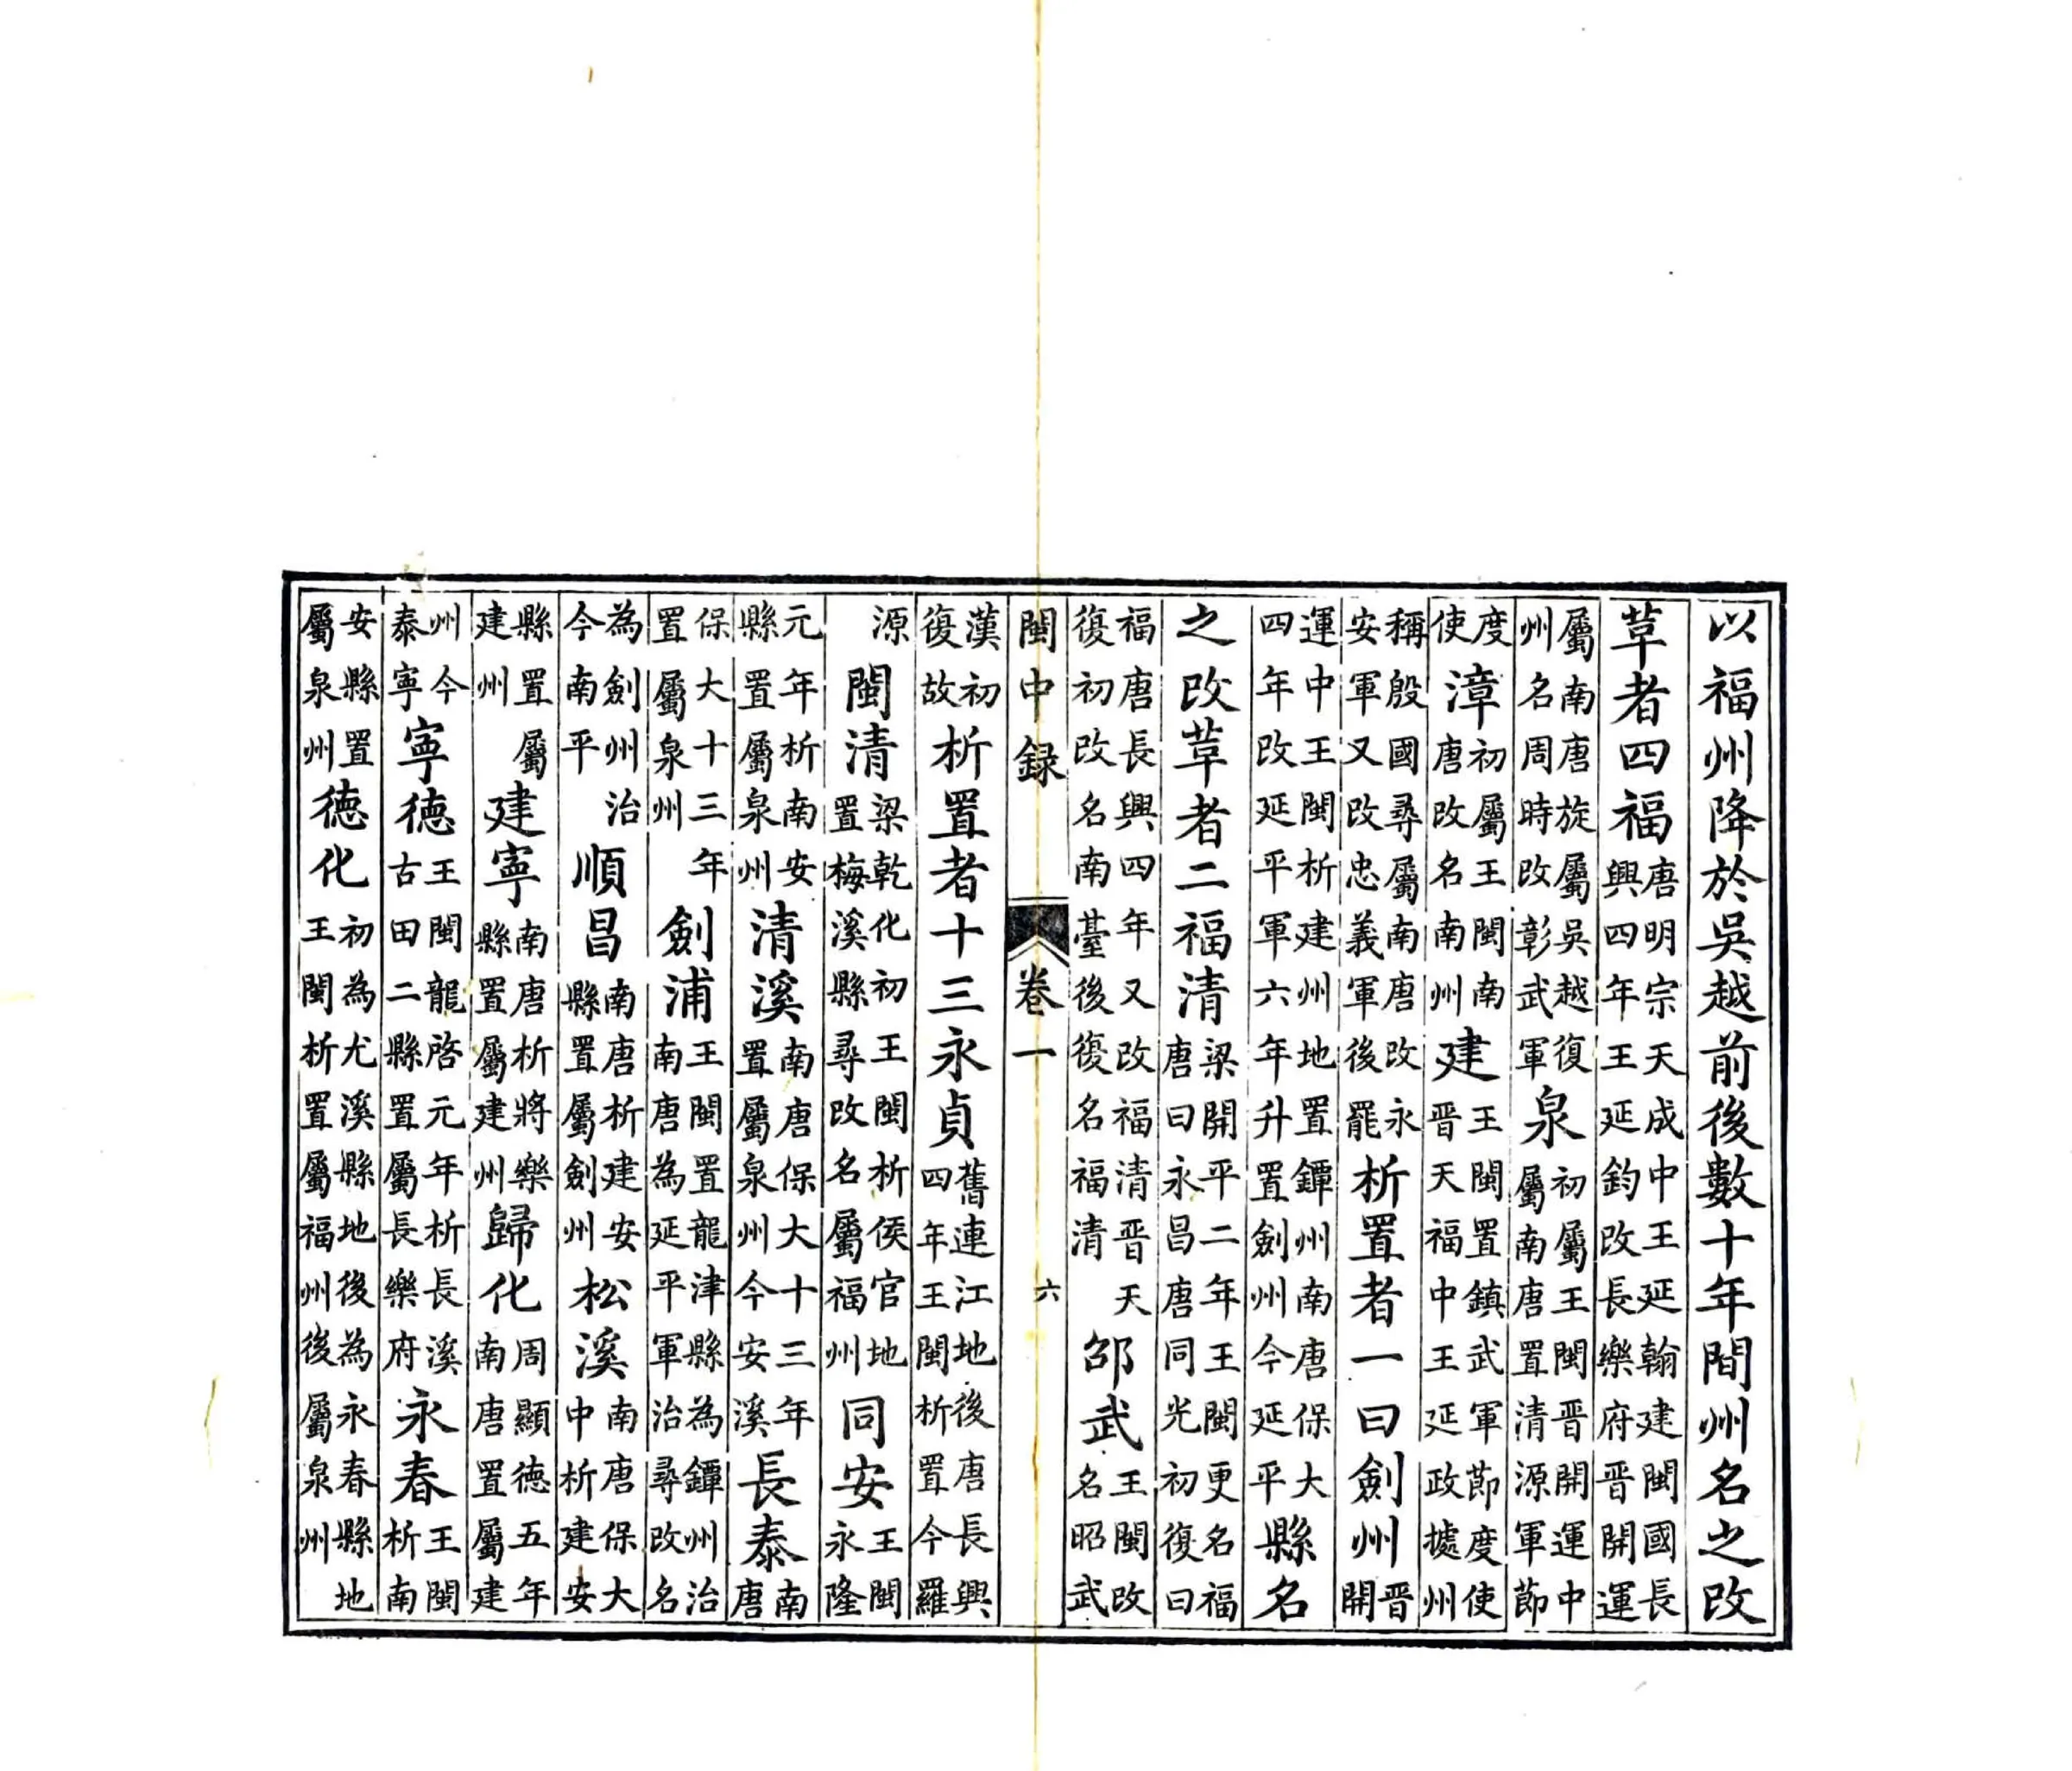 以福州降於吳越前後數十年間州名之改
草者四福唐明宗天成中王延翰建閩國長興四年王延鈞改長樂府晉開運
屬南唐旋屬吳越復州名周時改彰武軍泉初屬王閩晉開運中屬南唐置清源軍節
度使漳初屬王閩南唐改名南州建王閩置鎮武軍節度使晉天福中王延政據州
稱殷國尋屬南唐改永安軍又改忠義軍後罷析置者一曰劍州晉開
運中王閩析建州地置鐔州南唐保大四年改延平軍六年升置劍州今延平縣名
之改草者二福清梁開平二年王閩更名福唐曰永昌唐同光初復曰
福唐長興四年又改福清晉天復初改名南臺後復名福清邵武王閩改名昭武
閩中録 卷一 六
漢初復故析置者十三永貞舊連江地後唐長興四年王閩析置今羅
源閩清梁乾化初王閩析侯官地置梅溪縣尋改名屬福州同安王閩永隆
元年析南安縣置屬泉州清溪南唐保大十三年置屬泉州今安溪長泰南唐
保大十三年置屬泉州劍浦王閩置龍津縣為鐔州治南唐為延平軍治尋改名
為劍州治今南平順昌南唐析建安縣置屬劍州松溪南唐保大中析建安
縣置屬建州建寧南唐析將樂縣置屬建州歸化周顯德五年南唐置屬建
州今泰寧寧德王閩龍啓元年析長溪古田二縣置屬長樂府永春王閩析南
安縣置屬泉州德化初為尤溪縣地後為永春縣地王閩析置屬福州後屬泉州